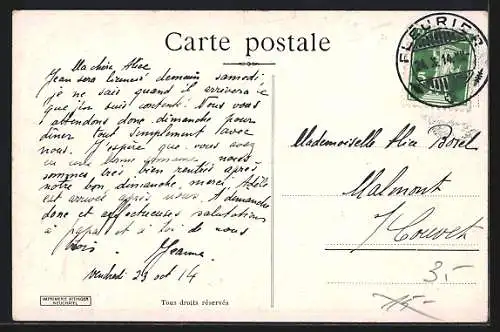 Carte postale
Ma chère Alice
Jean sera licencié demain samedi,
je ne sais quand il arrivera et
que j'en suis contente! Nous vous
attendons donc dimanche pour
dîner tout simplement avec
nous. J'espère que vous avez
eu une bonne semaine nous
sommes très bien rentrés après
notre bon dimanche, merci. Adèle
est arrivée après nous. A dimanche
donc et affectueuses salutations
à papa et à toi de nous
trois. Jeanne
Vendredi 23 oct 14
FLEURIER
Mademoiselle Alice Borel
Malmont
s/ Couvet
3.-
15.-
IMPRIMERIE ATTINGER
NEUCHATEL
Tous droits réservés